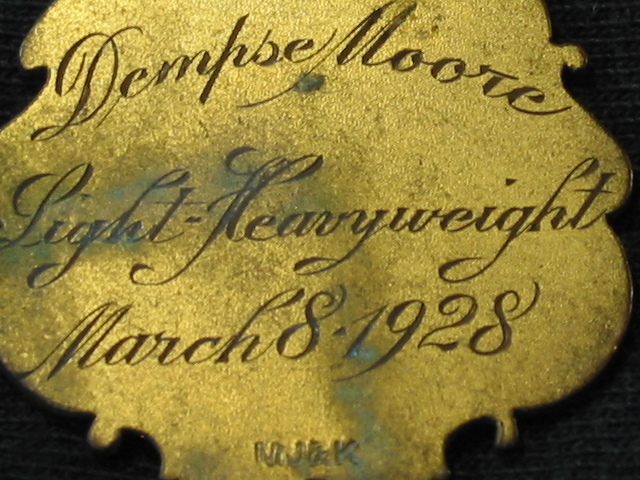 Dempse Moore
Light-Heavyweight
March 8·1928